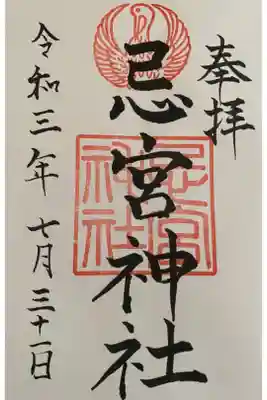 奉拝
忌宮神社
忌宮神社
令和三年 七月 三十一日